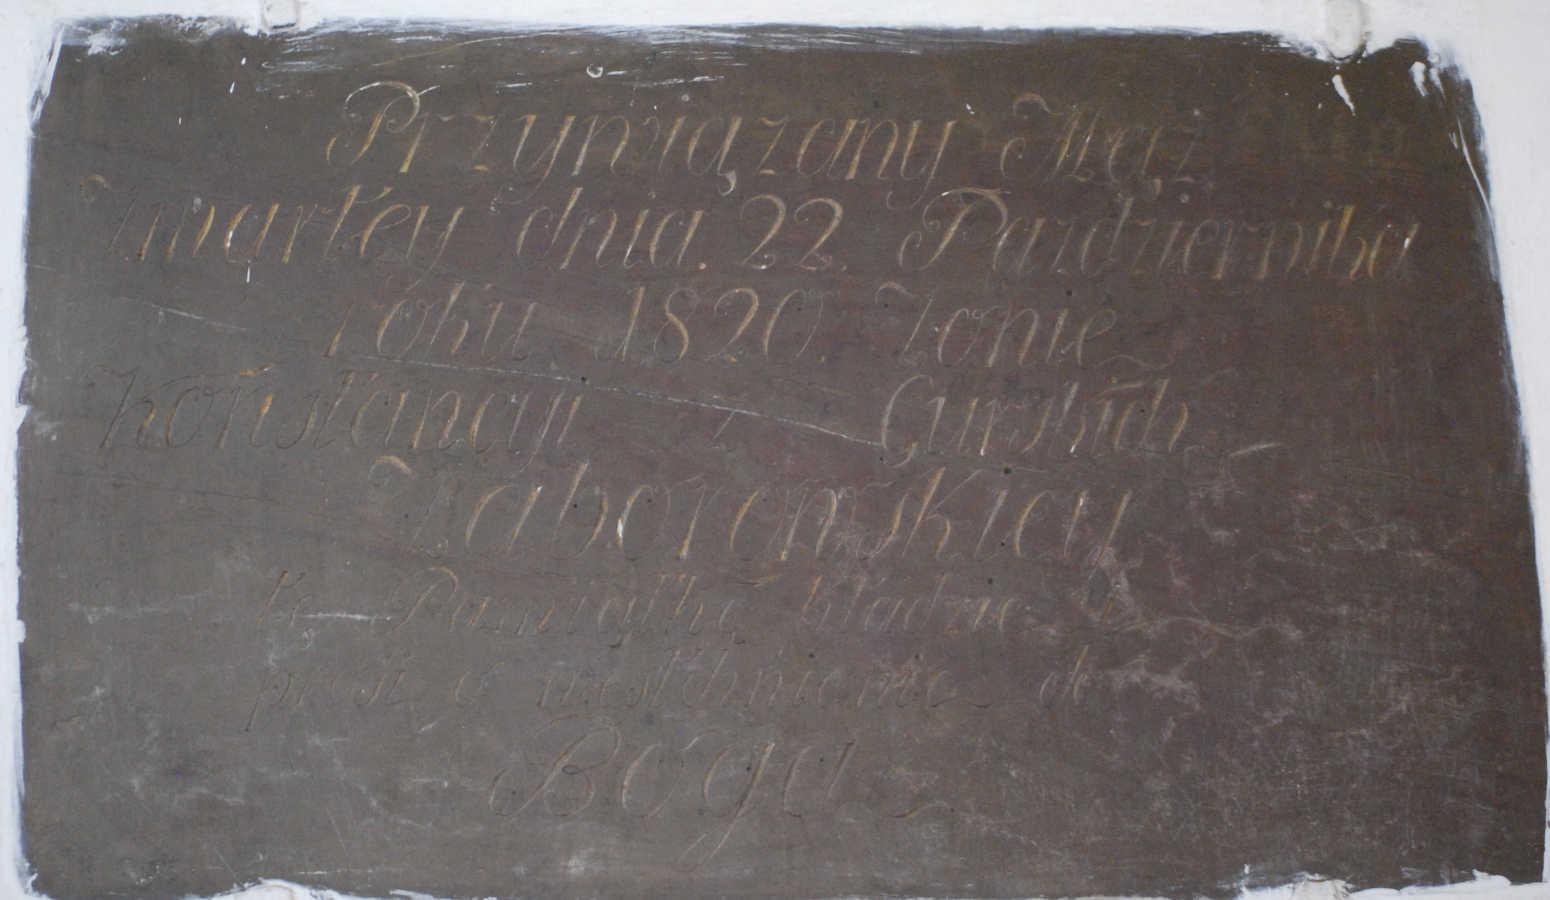 Przywiązany Mąż
Zmarłey dnia. 22. Pazdziernika
roku 1820. Zonie
Konstancyi z Gurskich
Zaborowskiey
tę Pamiątkę kładzie i
prosi o westchnienie do
Boga